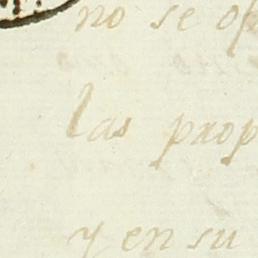 no se of
las prop
y en su